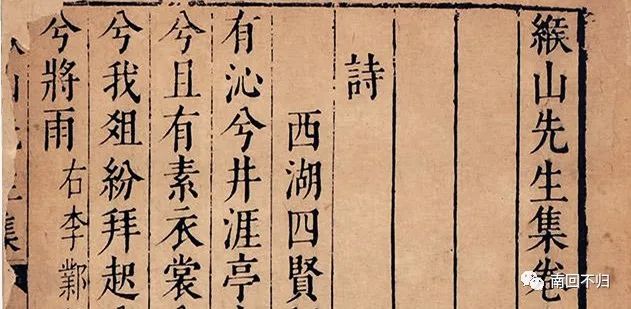 緱山先生集卷
詩
西湖四賢
有沁兮井涯亭
兮且有素衣裳
兮我俎紛拜起
兮將雨 右李鄴
南回不归